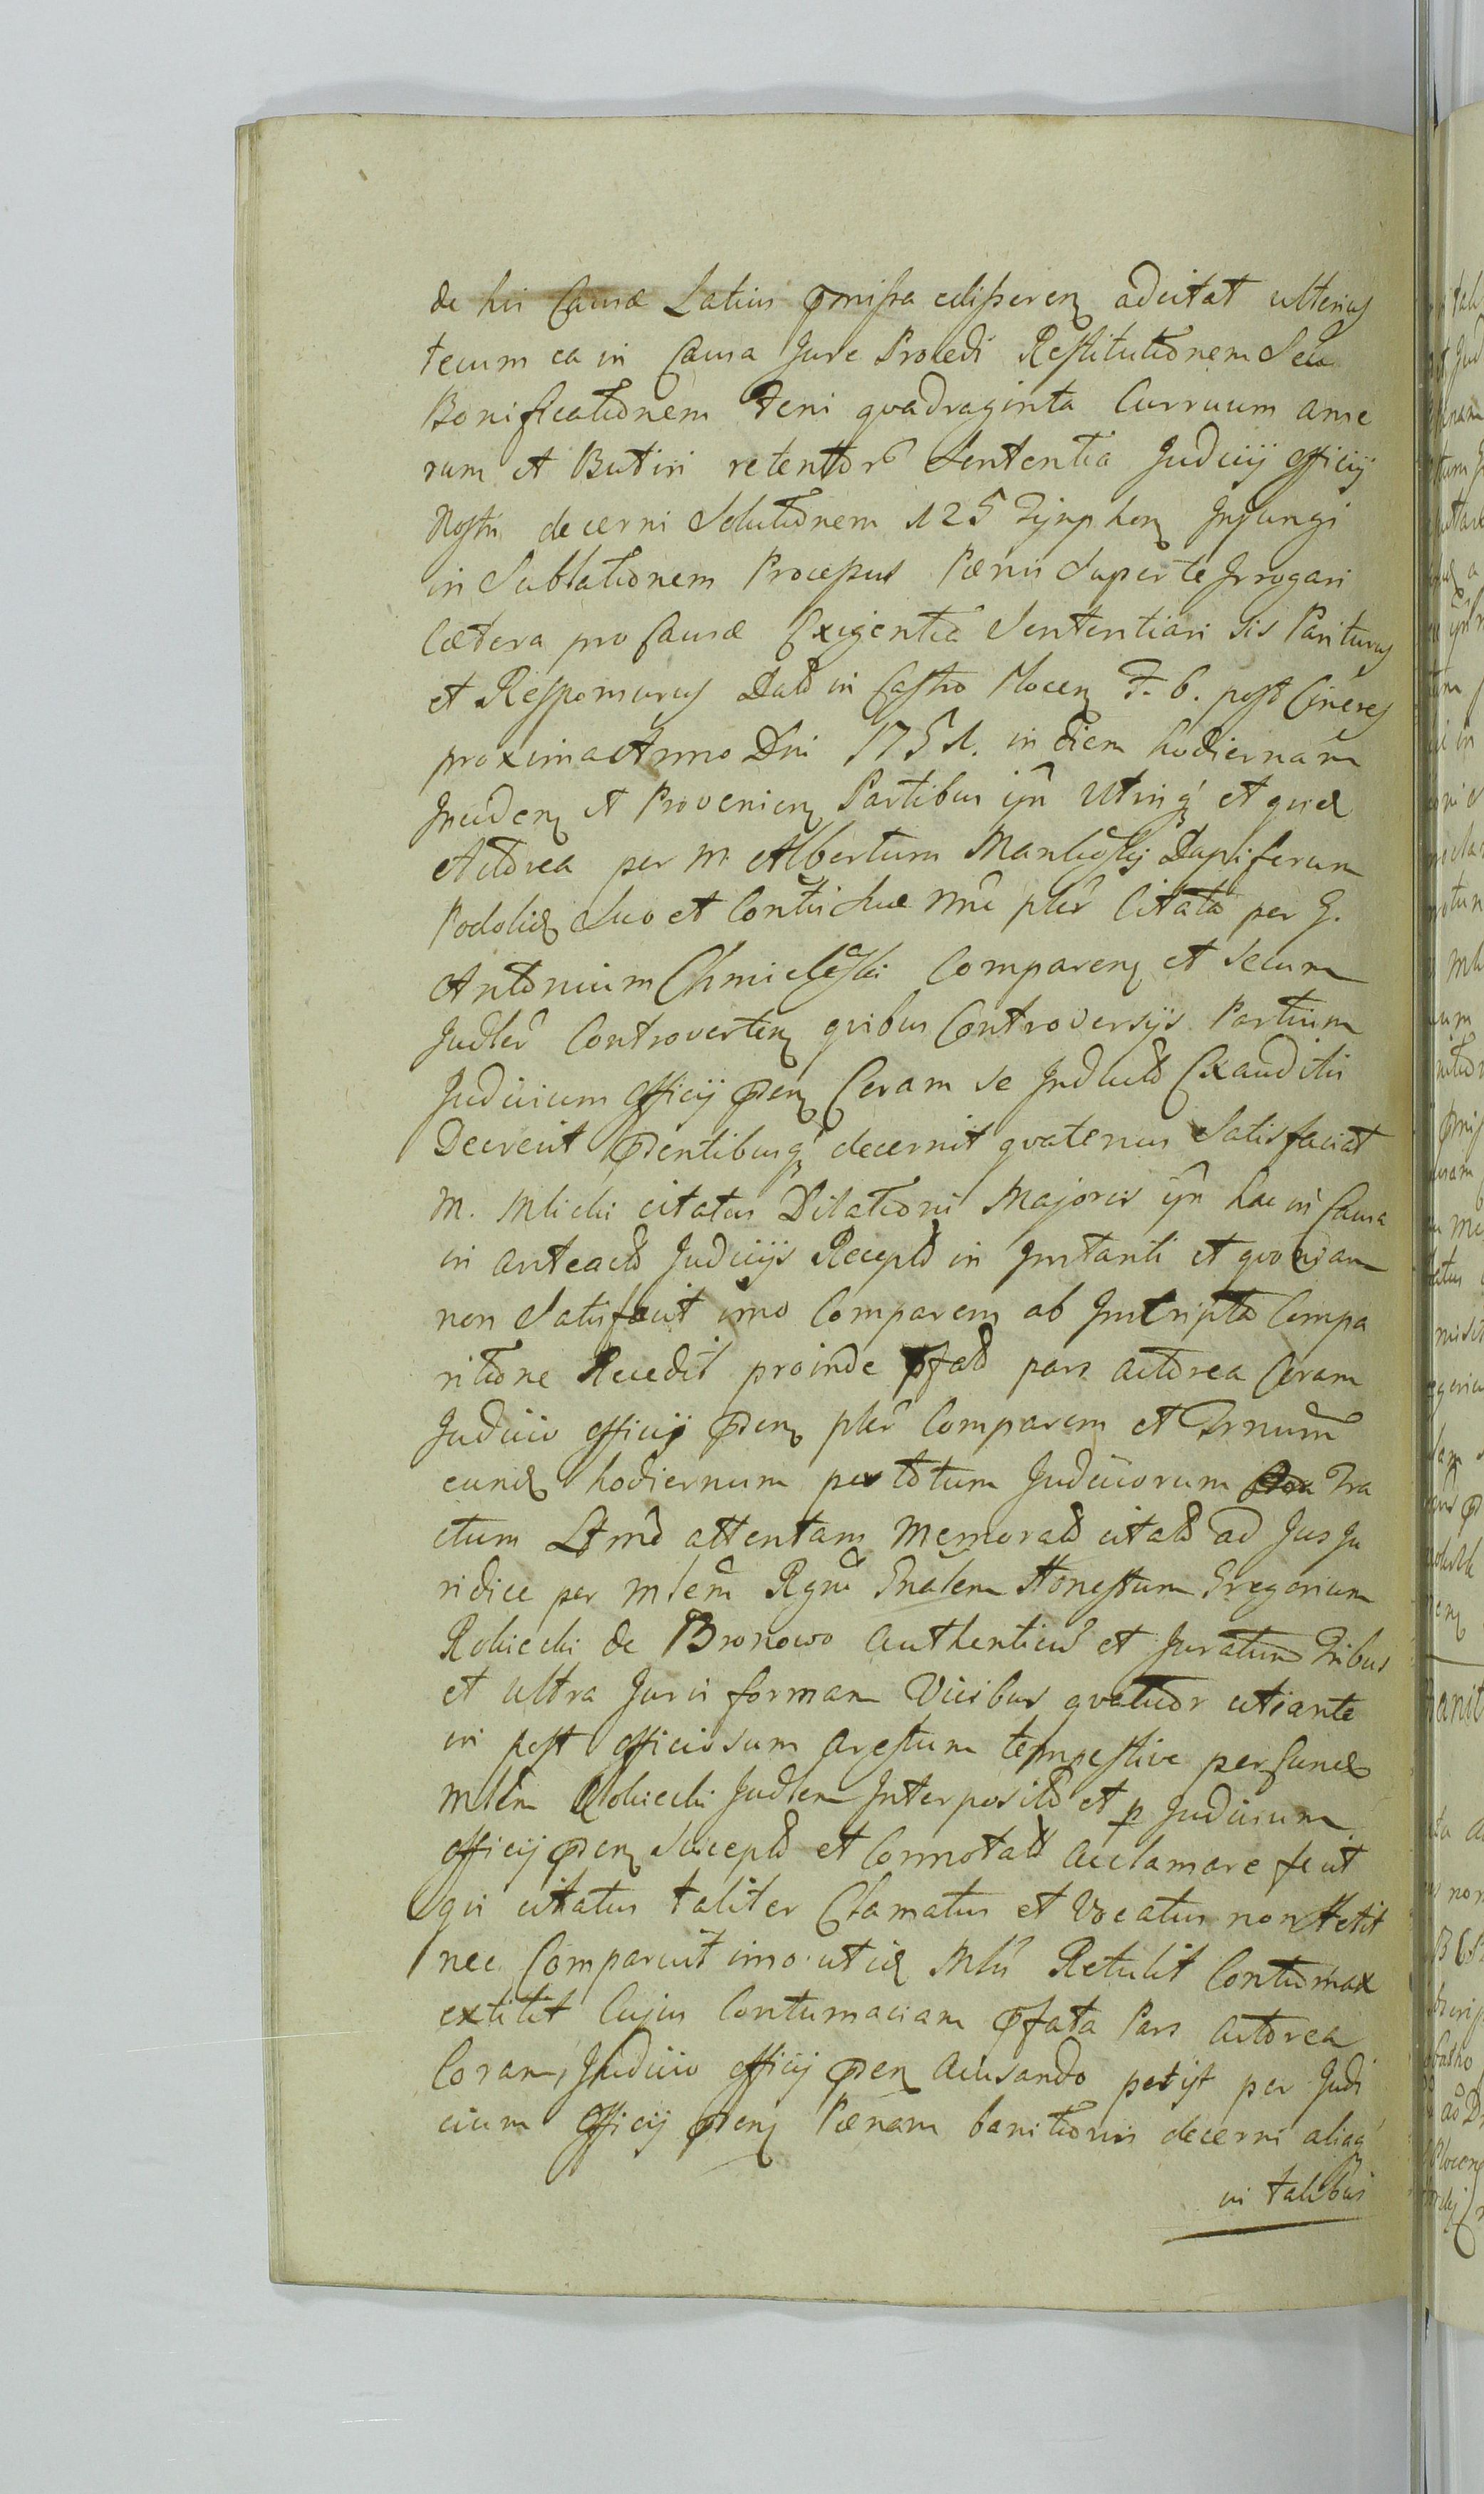 de his Causæ Latius præmissa edisseren adcitat ulterius
tecum ea in Causa Jure Procedi Restitutionem Seu
Bonificationem Feni quadraginta Curruum anse
rum et Butiri retentor Sententia Judicij officij
Nostri decerni Solutionem 125 Tijmphon Injungi
in Sublationem Processus Pænis Super te Irrogari
Cætera pro Causæ Exigentia Sententiari sis Pariturus
et Responsurus Datt in Castro Plocen F. 6. post Cineres
proxima Anno Dni 1751. in diem hodiernam
Inciden et Provenien Partibus ijn Utrinq et quid
Actorea per M Albertum Mankoskij Dapiferum
Podoliæ Suo et Contis suæ Nne pter Citata per G.
Antonium Chmieleski Comparen et Secum
Judter Controverten quibus Controversijs Partium
Judicium officij præn Coram se Inductt Exauditis
Decrevit præntibusq decernit quatenus Satisfaciat
M. Mlicki citatus Dilationis Majoris ijn hac in Causa
in anteactt Judicijs Receptt in Instanti et quoniam
non Satisfecit imo Comparens ab Inscripta Compa
ritione Recedit proinde præfatt pars actorea Coram
Judicio officij præn pter Comparens et Trnum
eund hodiernum per totum Judiciorum Tra
ctum Ltme attentans Memoratt citatt ad Jus Ju
ridice per Mlem Regni Gnalem Honestum Gregorium
Rokicki de Bronowo Authenticum et Juratum Tribus
et ultra Juris formam Vicibus quatuor uti ante
in post officiosum arestum tempestive per eund
Mlem Rokicki Judlem Interpositt et p Judicium
officij præn Susceptt et Connotatt acclamare fecit
qui citatus taliter Clamatus et Vocatus non Stetit
nec Comparuit imo ut id Mlis Retulit Contumax
extitit Cujus Contumaciam præfata Pars actorea
Coram Judicio officij præn accusando petijt per Judi
cium officij præn Pænam banitionis decerni aliaq
in talibus